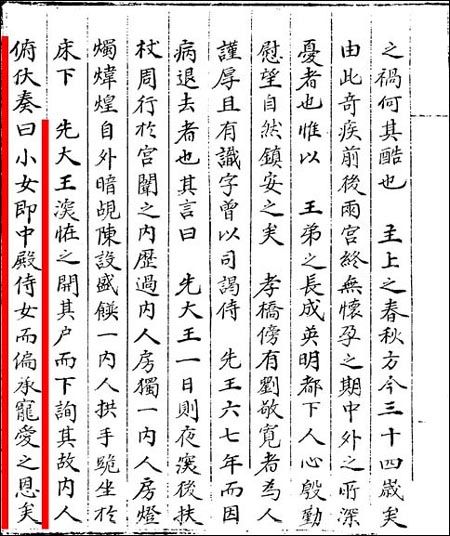 之禍何其酷也 主上之春秋方今三十四歲矣
由此奇疾前後兩宮終無懷孕之期中外之所深
憂者也惟以 王弟之長成英明都下人心殷勤
慰望自然鎮安之矣 孝橋傍有劉敬寬者為人
謹厚且有識字曾以司謁侍 先王六七年而因
病退去者也其言曰 先大王一日則夜深後扶
杖周行於宮闈之內歷過內人房獨一內人房燈
燭煒煌自外暗覘陳設盛饌一內人拱手跪坐於
床下 先大王深恠之開其户而下詢其故內人
俯伏奏曰小女即中殿侍女而偏承寵愛之恩矣